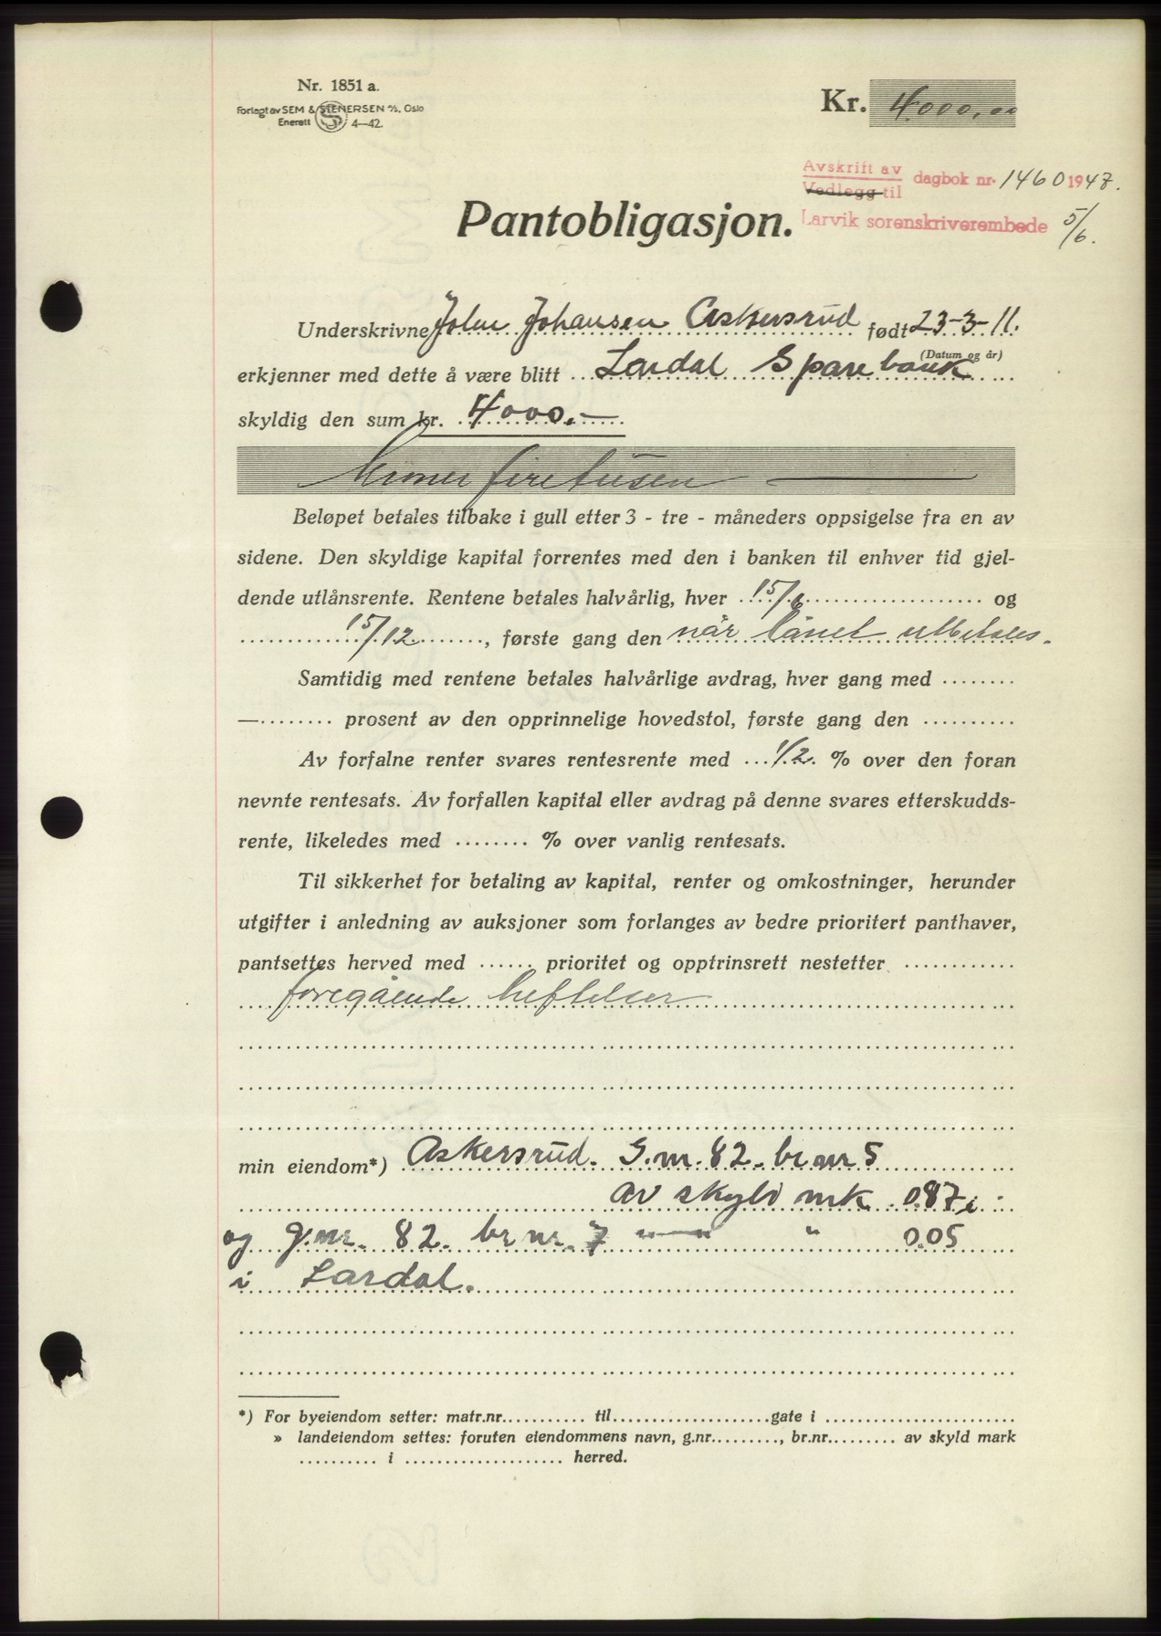 Nr. 1851 a.
Forlagt av SEM & STENERSEN A/S, Oslo
Enerett 4—42.
Kr. 4000,00
Avskrift av
Vedlegg til dagbok nr. 1460 1947.
Larvik sorenskriverembede 5/6.
Pantobligasjon.
Underskrivne John Johansen Askersrud født 23-3-11.
(Datum og år)
erkjenner med dette å være blitt Lardal Sparebank
skyldig den sum kr. 4000.-
Kroner firetusen
Beløpet betales tilbake i gull etter 3 - tre - måneders oppsigelse fra en av
sidene. Den skyldige kapital forrentes med den i banken til enhver tid gjel-
dende utlånsrente. Rentene betales halvårlig, hver 15/6 og
15/12, første gang den når lånet utbetales.
Samtidig med rentene betales halvårlige avdrag, hver gang med ........
—......... prosent av den opprinnelige hovedstol, første gang den ..........
Av forfalne renter svares rentesrente med 1/2 % over den foran
nevnte rentesats. Av forfallen kapital eller avdrag på denne svares etterskudds-
rente, likeledes med ........ % over vanlig rentesats.
Til sikkerhet for betaling av kapital, renter og omkostninger, herunder
utgifter i anledning av auksjoner som forlanges av bedre prioritert panthaver,
pantsettes herved med ...... prioritet og opptrinsrett nestetter ............
foregående heftelser
min eiendom*) Askersrud. G.nr. 82. br nr 5
av skyld mrk. 0.87 i
og g.nr. 82. br nr. 7 —"— " 0.05
i Lardal.
*) For byeiendom setter: matr.nr........... til....................gate i ........................
» landeiendom settes: foruten eiendommens navn, g.nr........., br.nr......... av skyld mark
.......... i .................... herred.